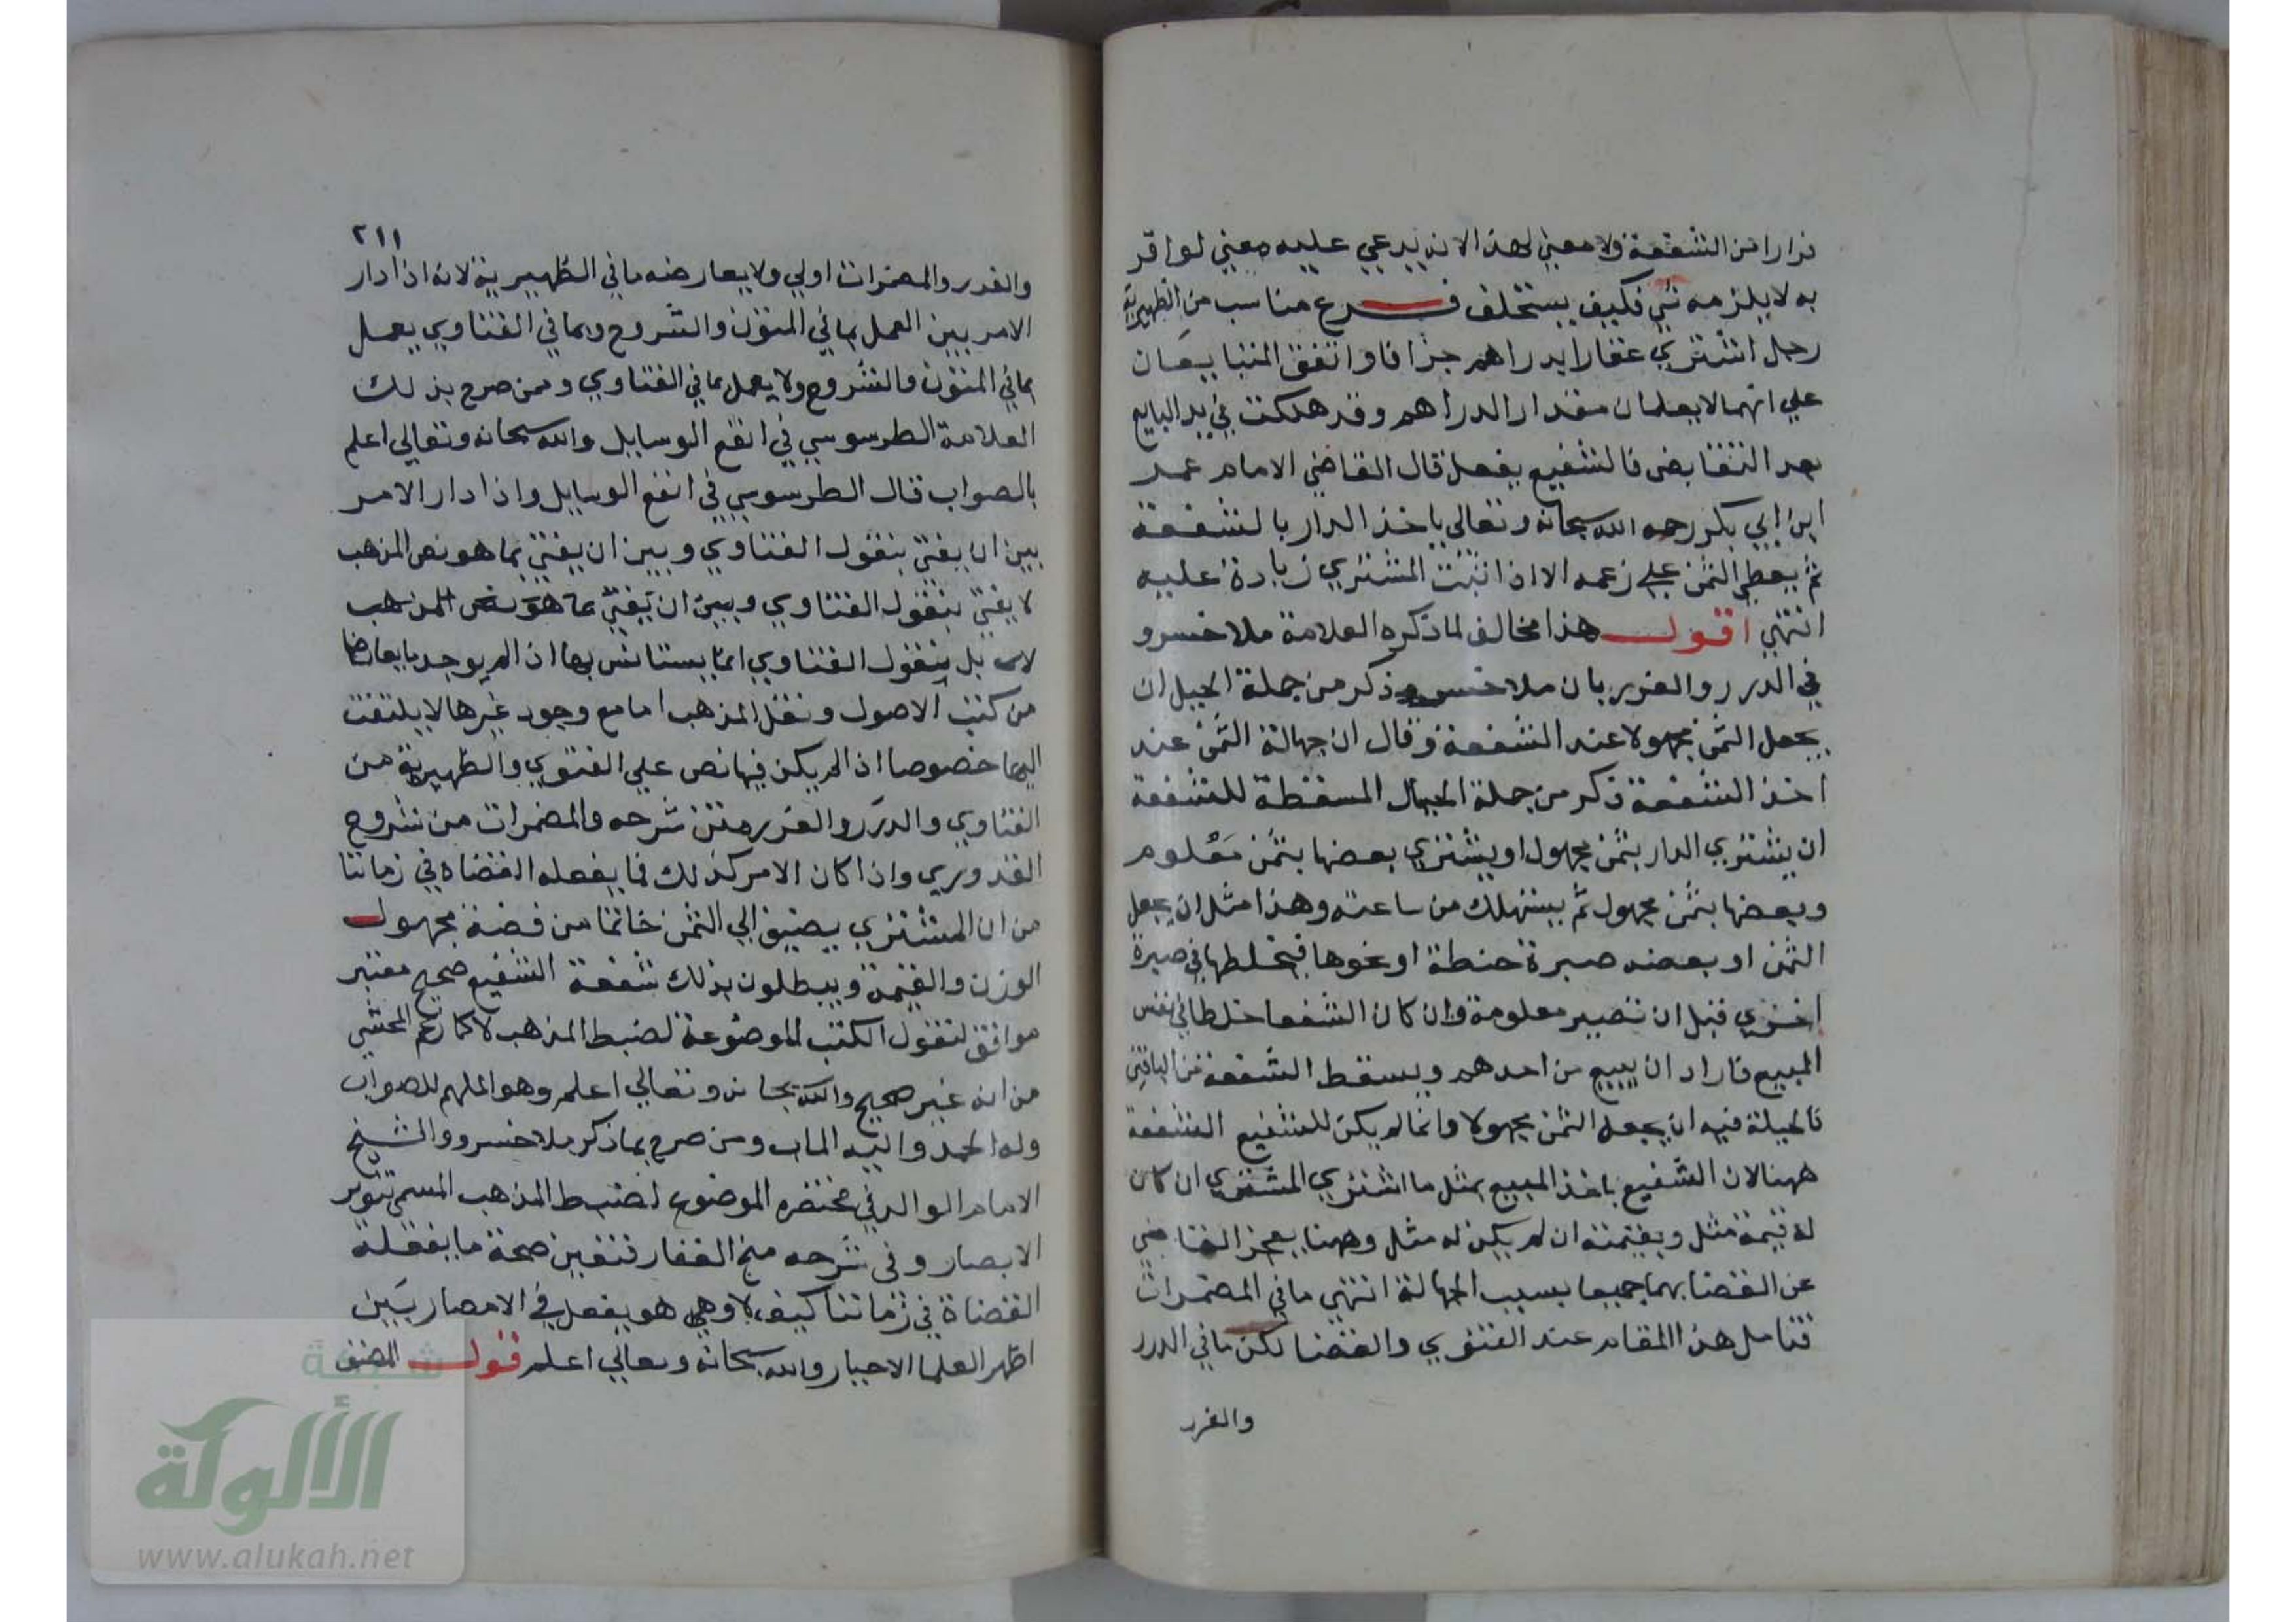 فرارا من الشفعة ولا معني لهذا لانه يدعي عليه معني لو اقر
به لا يلزمه شي فكيف يستخلف فرع مناسب من الظهيرية
رجل اشتري عقارا بدراهم جزافا واتفق المتبايعان
علي انهما لا يعلمان مقدار الدراهم وقد هلكت في يد البايع
بعد التقابض فالشفيع يفعل قال القاضي الامام عمر
ابن ابي بكر رحمه الله سبحانه وتعالى ياخذ الدار بالشفعة
ثم يعطي الثمن علي زعمه الا اذا اثبت المشتري زيادة عليه
انتهي اقول هذا مخالف لما ذكره العلامة ملا خسرو
في الدرر والغرر بان ملا خسرو ذكر من جملة الحيل ان
يجعل الثمن مجهولا عند الشفعة وقال ان جهالة الثمن عند
اخذ الشفعة ذكر من جملة الحيال المسقطة للشفعة
ان يشتري الدار بثمن مجهول او يشتري بعضها بثمن معلوم
وبعضها بثمن مجهول ثم يستهلك من ساعته وهذا مثل ان يجعل
الثمن او بعضه صبرة حنطة او نحوها فيخلطها في صبرة
اخري قبل ان تصير معلومة وان كان الشفعا خلطا في نفس
المبيع فاراد ان يبيع من احدهم ويسقط الشفعة من الباقين
فالحيلة فيه ان يجعل الثمن مجهولا وانما لم يكن للشفيع الشفعة
ههنا لان الشفيع ياخذ المبيع بمثل ما اشتري المشتري ان كان
له قيمة مثل وبقيمته ان لم يكن له مثل وههنا يعجز القاضي
عن القضا بهما جميعا بسبب الجهالة انتهي ما في المضمرات
فتامل هذا المقام عند الفتوي والقضا لكن ما في الدرر
والغرر
٢١١
والغدر والمضمرات اولي ولا يعارضه ما في الظهيرية لانه اذا دار
الامر بين العمل بما في المتون والشروح وبما في الفتاوي يعمل
بما في المتون والشروح ولا يعمل بما في الفتاوي وممن صرح بذلك
العلامة الطرسوسي في انفع الوسايل والله سبحانه وتعالي اعلم
بالصواب قال الطرسوسي في انفع الوسايل واذا دار الامر
بين ان يفتي بنقول الفتاوي وبين ان يفتي بما هو نص المذهب
لا يفتي بنقول الفتاوي وبين ان يفتي بما هو نص المذهب
لا بل بنقول الفتاوي انما يستانس بها اذا لم يوجد ما يعارضها
من كتب الاصول ونقل المذهب اما مع وجود غيرها لا يلتفت
اليها خصوصا اذا لم يكن فيها نص علي الفتوي والظهيرية من
الفتاوي والدرر والغرر متن شرحه والمضمرات من شروح
القدوري واذا كان الامر كذلك فما يفعله القضاة في زماننا
من ان المشتري يضيف الي الثمن خاتما من فضة مجهول
الوزن والقيمة ويبطلون بذلك شفعة الشفيع صحيح معتبر
موافق لنقول الكتب الموضوعة لضبط المذهب لا كما زعم المحشي
من انه غير صحيح والله سبحانه وتعالي اعلم وهو الملهم للصواب
وله الحمد واليه الماب ومن صرح بما ذكر ملا خسرو والشيخ
الامام الوالد في مختصره الموضوع لضبط المذهب المسمي تنوير
الابصار وفي شرحه منح الغفار فتعين صحة ما يفعله
القضاة في زماننا كيف لا وهي هو يفعل في الامصار بين
اظهر العلما الاحبار والله سبحانه وتعالي اعلم قول المصنف
شبكة
الألوكة
www.alukah.net